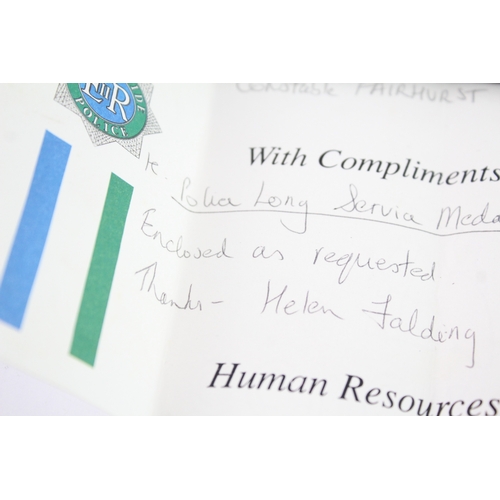 Constable FAIRHURST
IDE
POLICE
EiiR
With Compliments
re. Police Long Service Meda
Enclosed as requested.
Thanks - Helen Falding
Human Resources